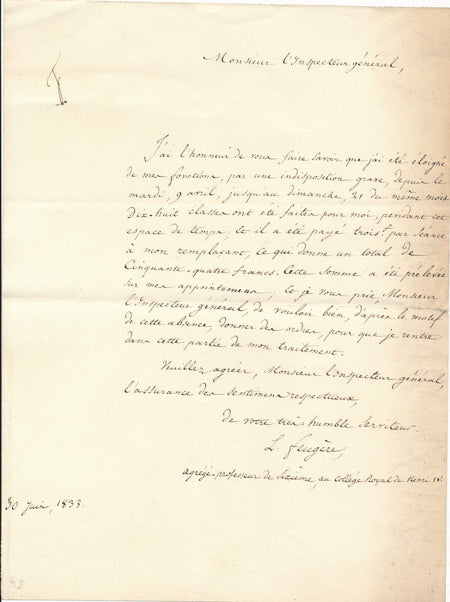 Monsieur l'Inspecteur général,
J'ai l'honneur de vous faire savoir que j'ai été éloigné
de mes fonctions, par une indisposition grave, depuis le
mardi, 9 avril, jusqu'au dimanche, 21 du même mois
Dix-huit classes ont été faites pour moi, pendant cet
espace de temps, et il a été payé trois f. par séance
à mon remplaçant, ce qui donne un total de
Cinquante-quatre francs. Cette somme a été prélevée
sur mes appointemens, et je vous prie, Monsieur
l'Inspecteur général, de vouloir bien, d'après le motif
de cette absence, donner des ordres, pour que je rentre
dans cette partie de mon traitement.
Veuillez agréer, Monsieur l'inspecteur général,
l'assurance des sentimens respectueux,
de votre très humble serviteur.
L. Feugère,
agrégé-professeur de Sixième, au Collège Royal de Henri IV.
30 Juin, 1833.